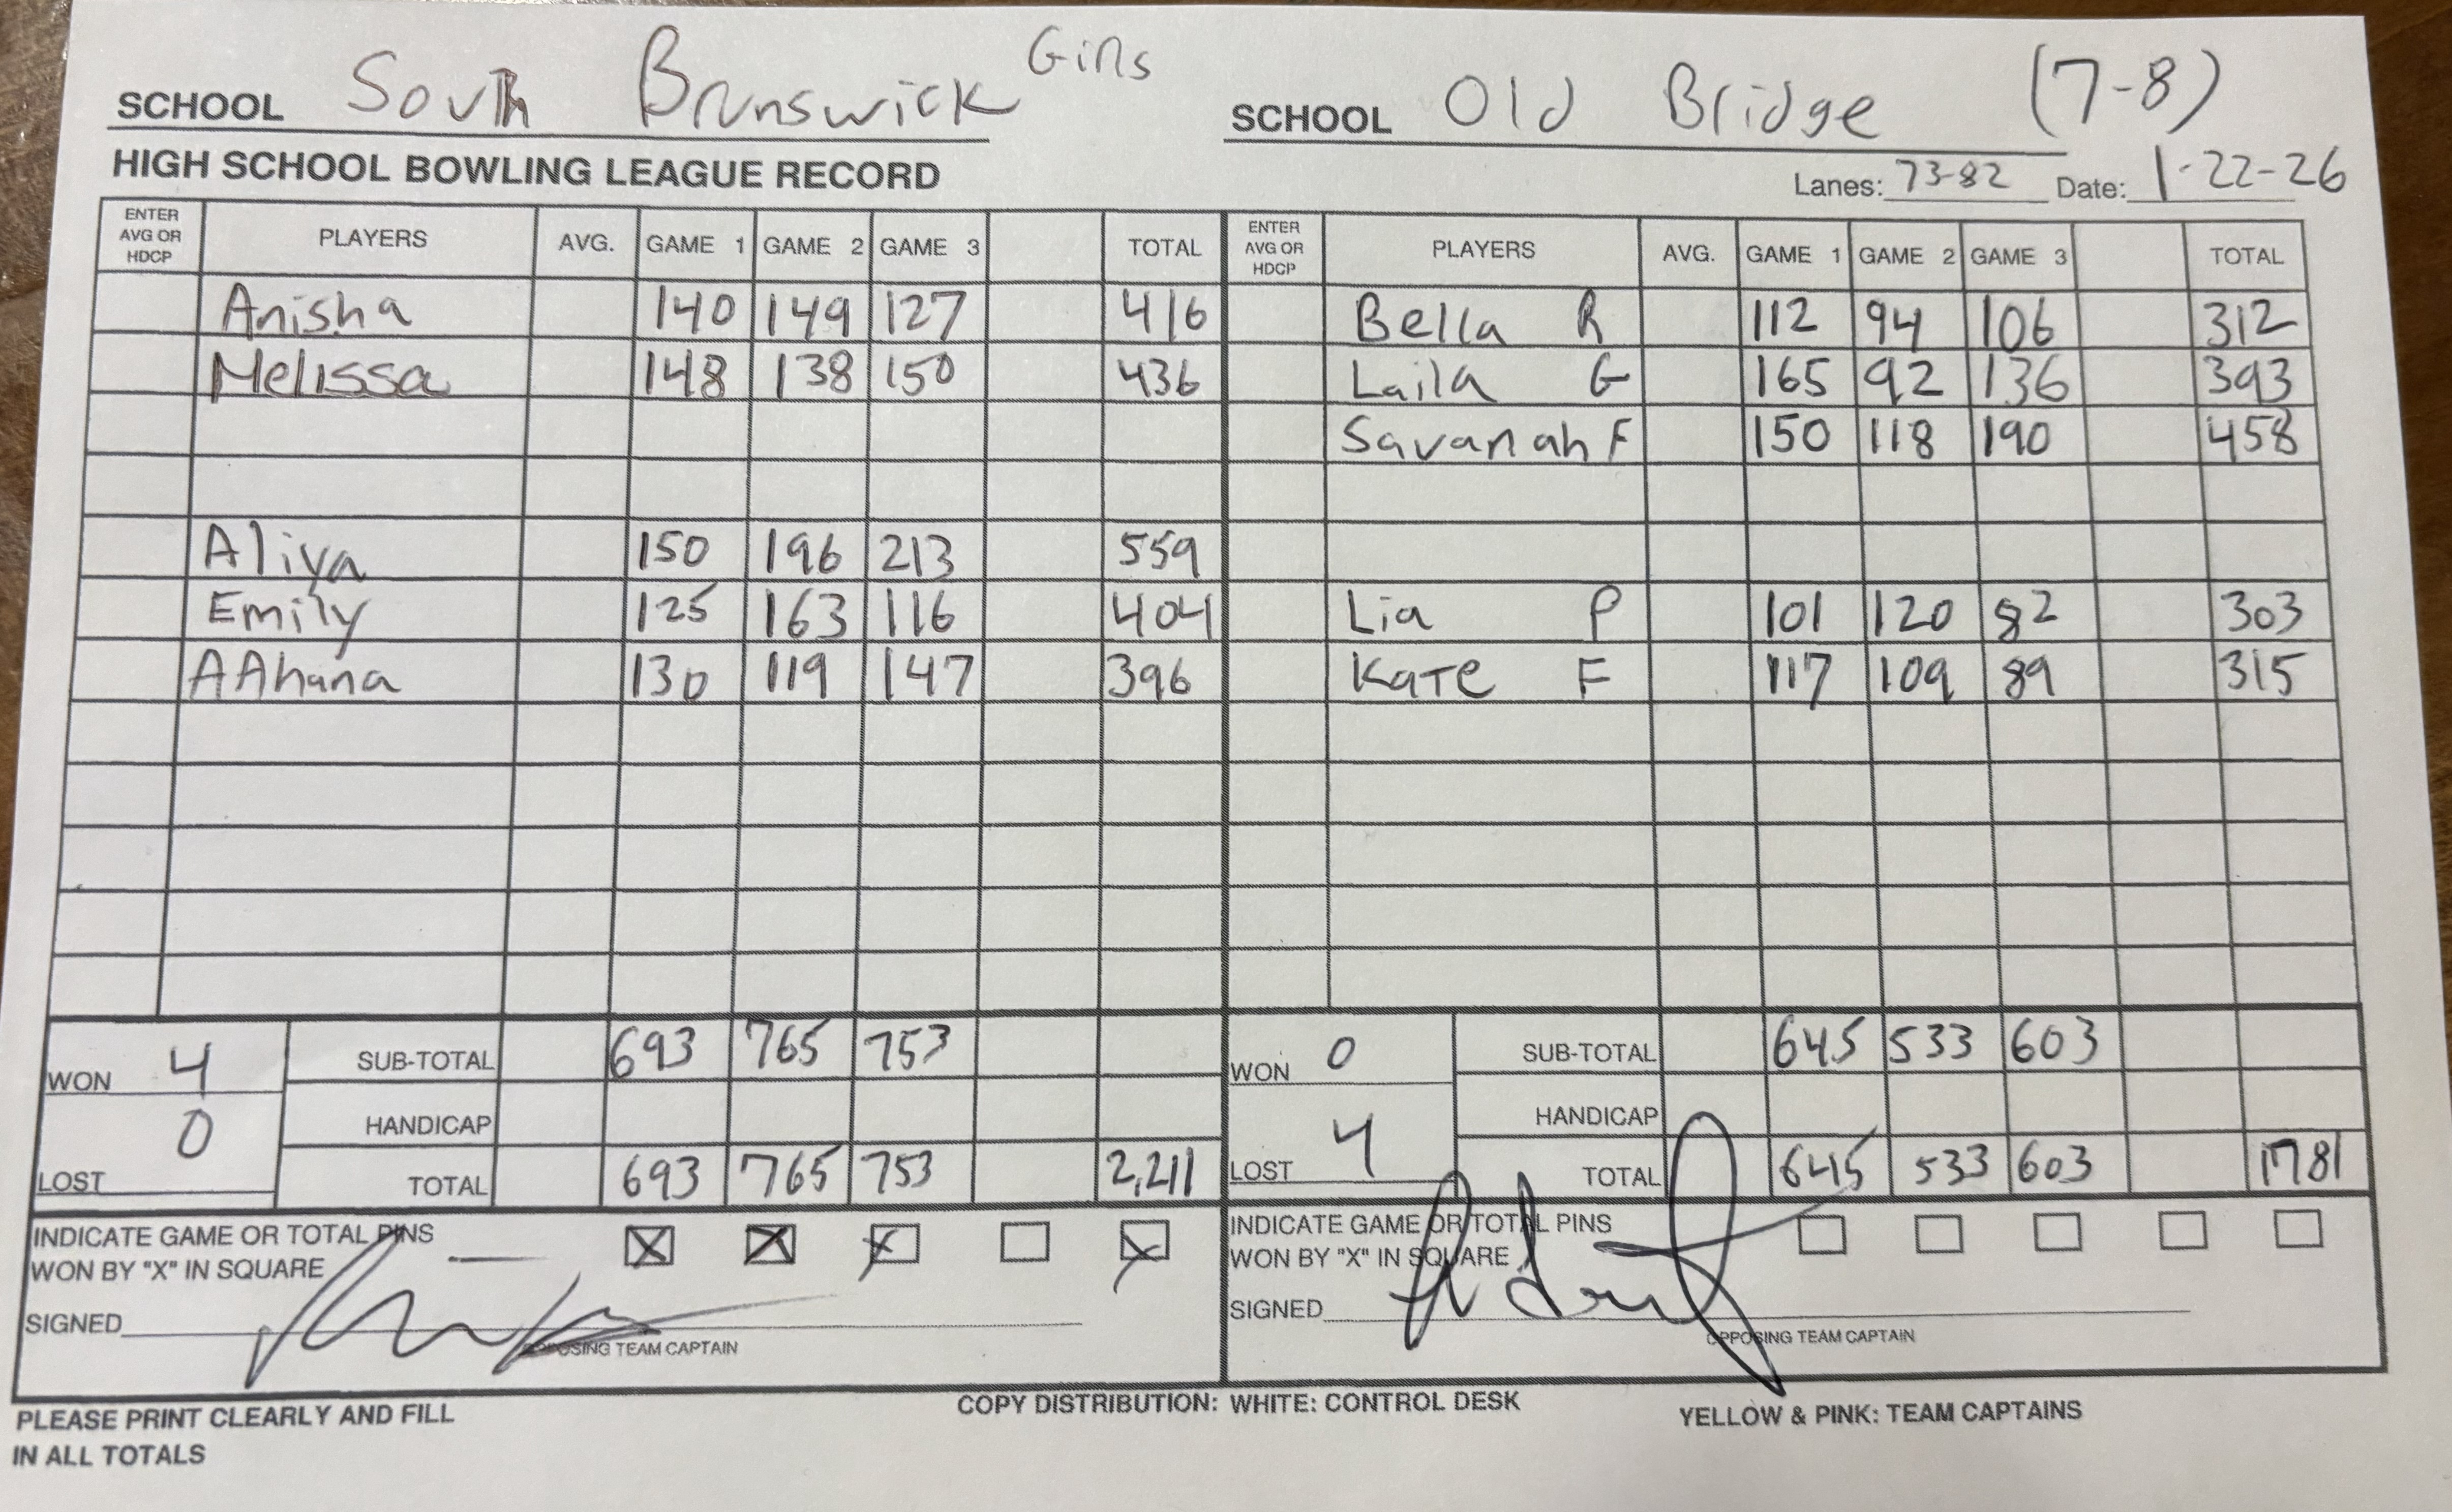 SCHOOL South Brunswick Girls SCHOOL Old Bridge (7-8)
HIGH SCHOOL BOWLING LEAGUE RECORD Lanes: 73-82 Date: 1-22-26
ENTER AVG OR HDCP PLAYERS AVG. GAME 1 GAME 2 GAME 3 TOTAL ENTER AVG OR HDCP PLAYERS AVG. GAME 1 GAME 2 GAME 3 TOTAL
Anisha 140 149 127 416 Bella R 112 94 106 312
Melissa 148 138 150 436 Laila G 165 92 136 393
Savanah F 150 118 190 458
Aliya 150 196 213 559
Emily 125 163 116 404 Lia P 101 120 82 303
AAhana 130 119 147 396 Kate F 117 109 89 315
WON 4 SUB-TOTAL 693 765 753 WON 0 SUB-TOTAL 645 533 603
HANDICAP HANDICAP
LOST 0 TOTAL 693 765 753 2,211 LOST 4 TOTAL 645 533 603 1781
INDICATE GAME OR TOTAL PINS X X X X INDICATE GAME OR TOTAL PINS
WON BY "X" IN SQUARE WON BY "X" IN SQUARE
SIGNED SIGNED
OPPOSING TEAM CAPTAIN OPPOSING TEAM CAPTAIN
PLEASE PRINT CLEARLY AND FILL COPY DISTRIBUTION: WHITE: CONTROL DESK YELLOW & PINK: TEAM CAPTAINS
IN ALL TOTALS